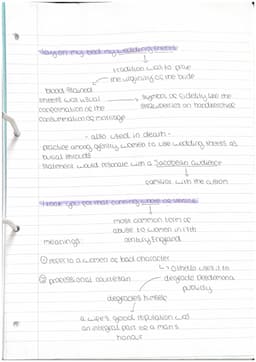 Lay on my bed my wedding sheets
tradition was to prove
the virginity of the bride
blood stained
sheets was usual
confirmation of the
consummation of marriage
symbol of fidelity like the
strawberries on handkerchief
- also used in death -
practice among gentry women to use wedding sheets as
burial shrouds
statement would resonate with a Jacobean audience
familiar with the custom
I took you for that cunning whore of Venice
most common term of
abuse to women in 17th
century England
meanings
① refer to a women of bad character
② professional courtesan
Othello uses it to
degrade Desdemona
publicly
degrades himself
a wife's good reputation was
an integral part of a man's
honour